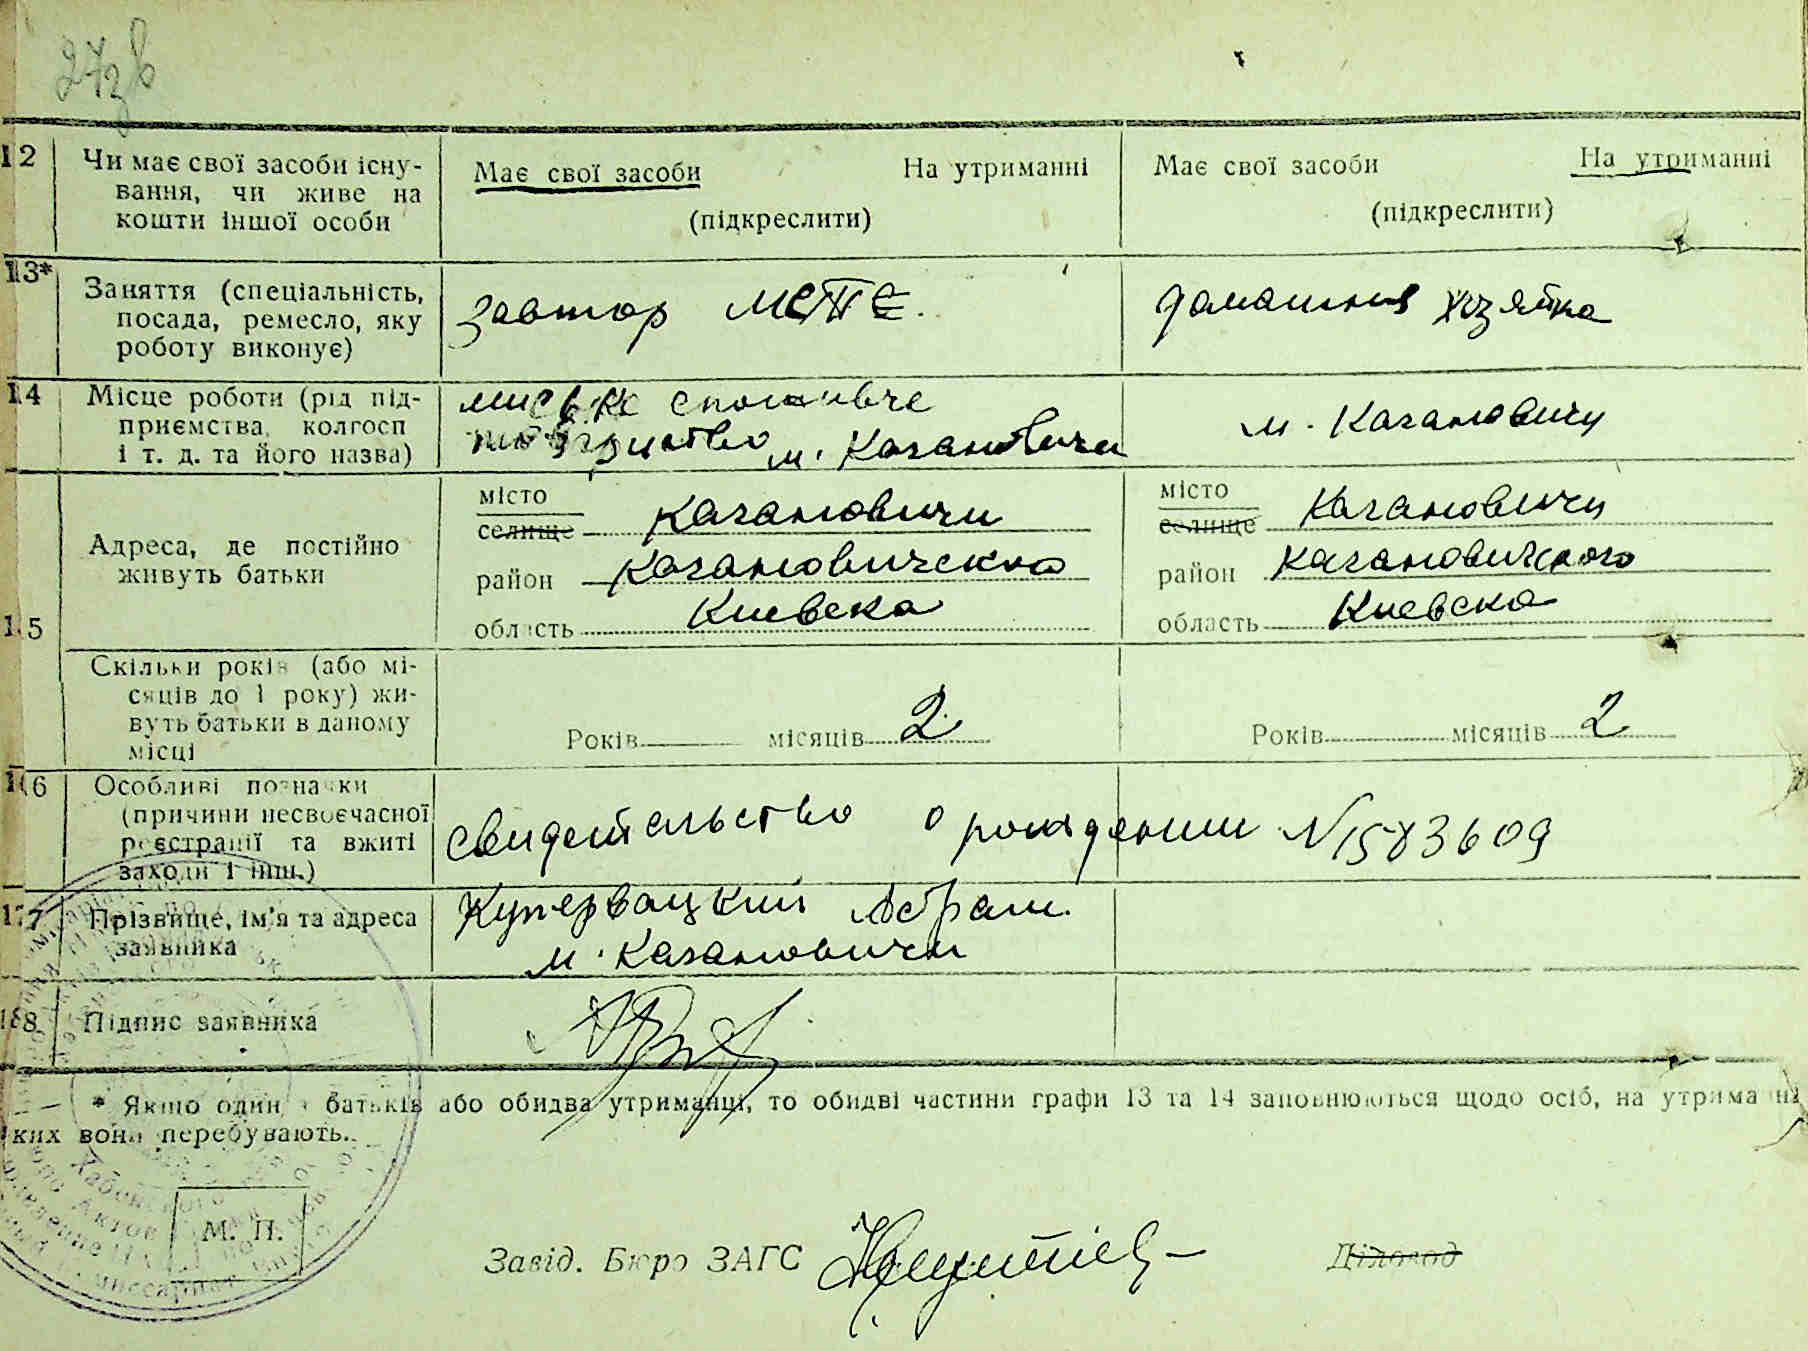 12 Чи має свої засоби існу-
вання, чи живе на
кошти іншої особи
Має свої засоби На утриманні
(підкреслити)
Має свої засоби На утриманні
(підкреслити)
13* Заняття (спеціальність,
посада, ремесло, яку
роботу виконує)
Завтор
домашня хзяйка
14 Місце роботи (рід під-
приємства, колгосп
і т. д. та його назва)
миське споживче
товариство м. Кагановичи
м. Кагановичи
15 Адреса, де постійно
живуть батьки
місто
селище Кагановичи
район Кагановическо
область Киевска
місто
селище Кагановичи
район Кагановичского
область Киевска
Скільки років (або мі-
сяців до 1 року) жи-
вуть батьки в даному
місці
Років місяців 2
Років місяців 2
16 Особливі позначки
(причини несвоєчасної
реєстрації та вжиті
заходи і інш.)
свидетельство о рождении N1583609
17 Прізвище, ім'я та адреса
заявника
Купервацкий Абрам.
м. Кагановичи
18 Підпис заявника
* Якщо один з батьків або обидва утриманці, то обидві частини графи 13 та 14 заповнюються щодо осіб, на утриманні
яких вони перебувають.
М. П.
Завід. Бюро ЗАГС
Діловод